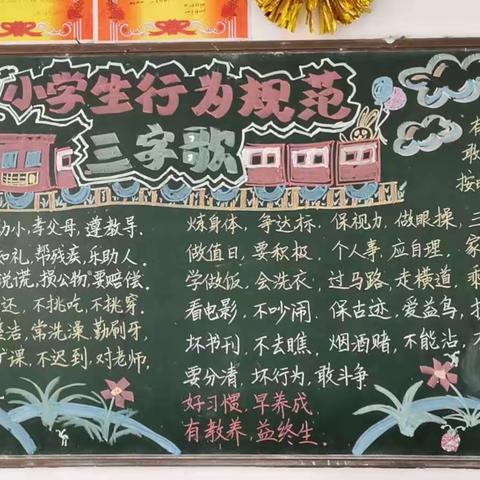 小学生行为规范
三字歌
幼小,孝父母,遵教导.
知礼,帮残疾,乐助人.
说谎,损公物,要赔偿.
还,不挑吃,不挑穿.
洁,常洗澡,勤刷牙.
旷课,不迟到,对老师,
炼身体,争达标.保视力,做眼操,三
做值日,要积极.个人事,应自理,家
学做饭,会洗衣,过马路,走横道,乘
看电影,不吵闹.保古迹,爱益鸟,
坏书刊,不去瞧,烟酒赌,不能沾,不
要分清,坏行为,敢斗争.
好习惯,早养成,
有教养,益终生.
敢
按